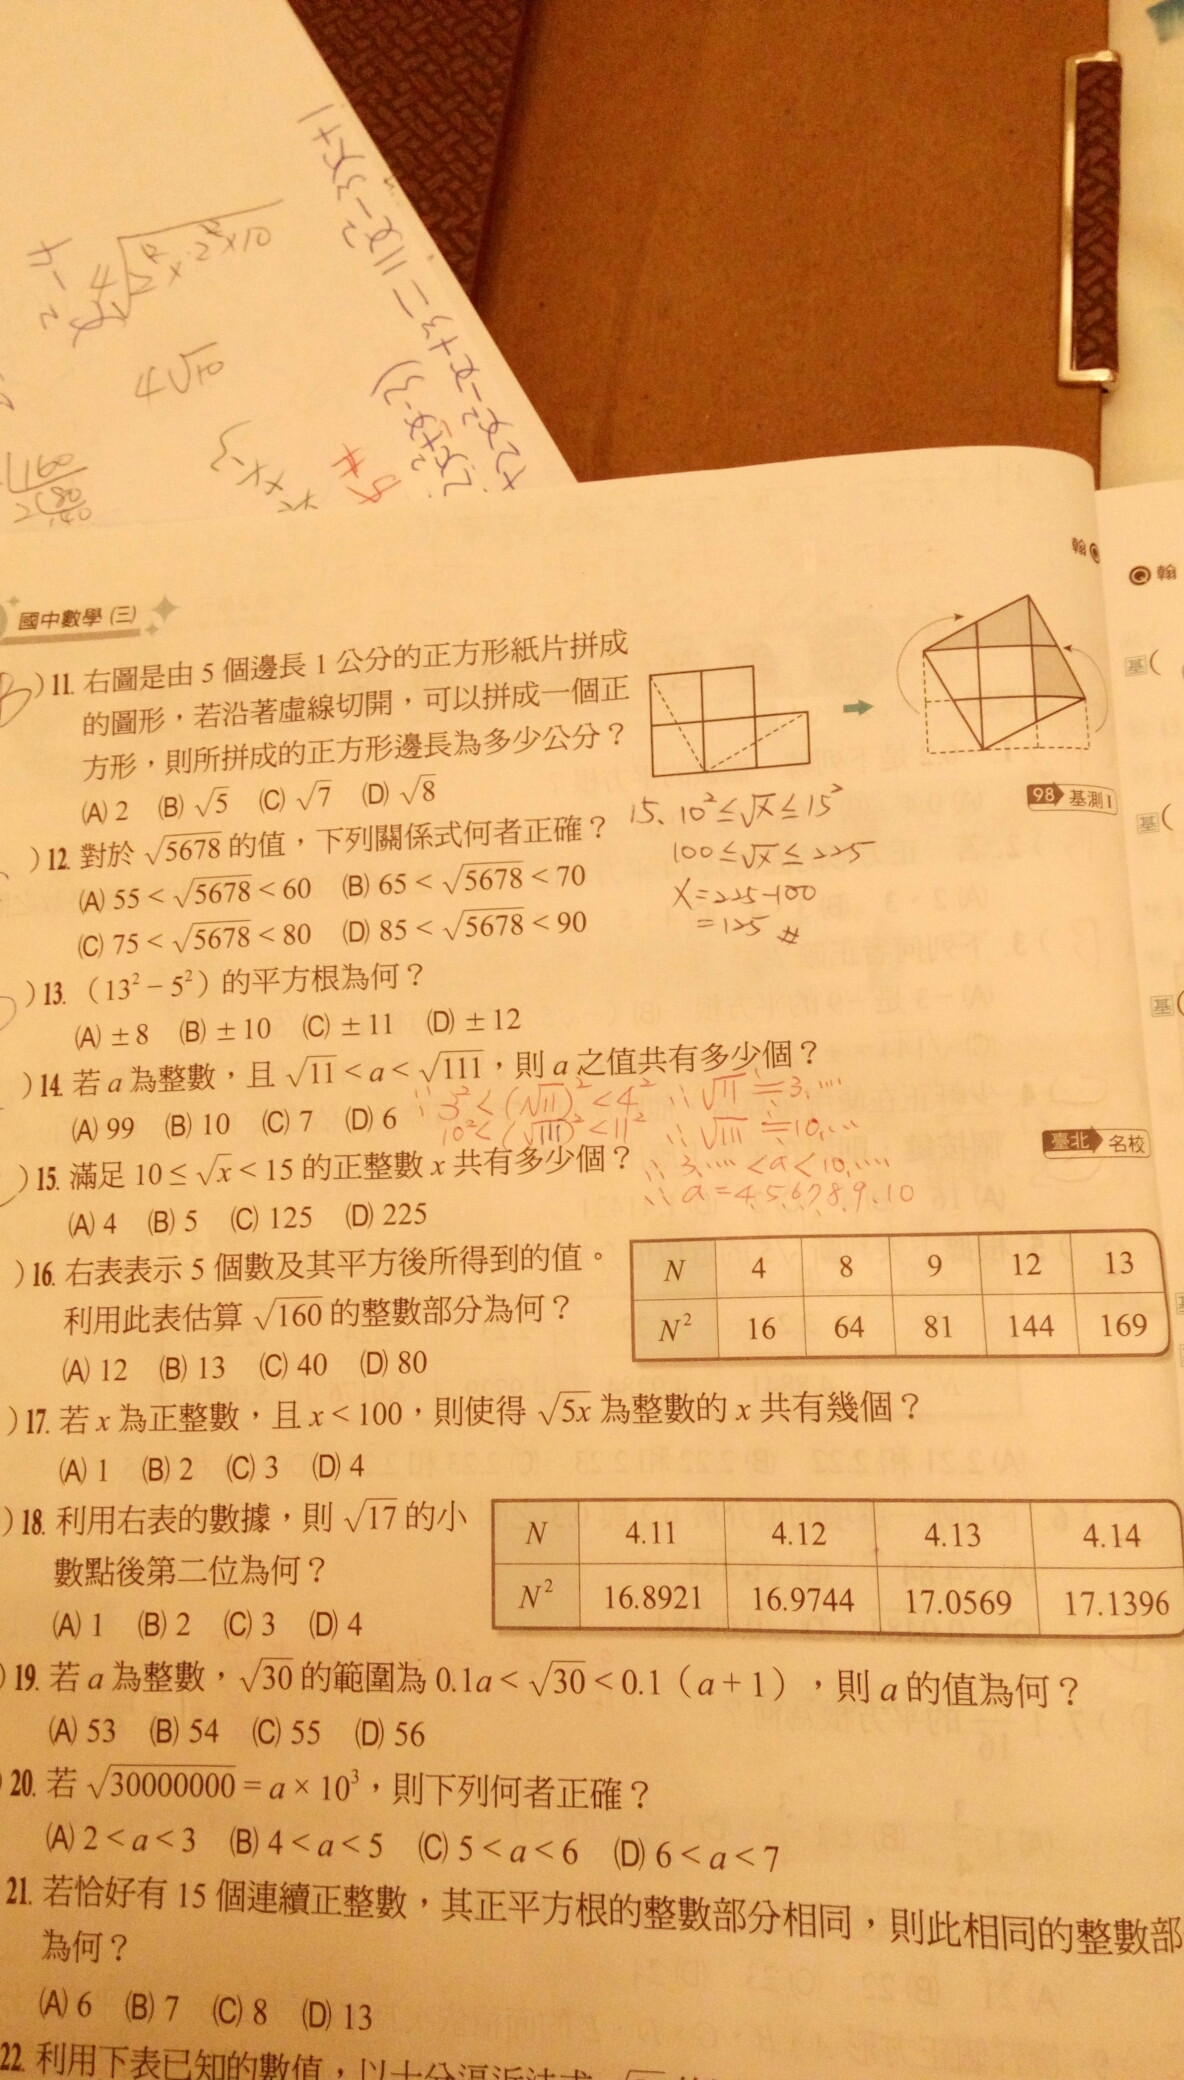 -3x+1
11x-3x+2
2x²-x+3=
4√10
4√2²×2²×10
#
國中數學 (三)
翰
翰
)11. 右圖是由 5 個邊長 1 公分的正方形紙片拼成
的圖形，若沿著虛線切開，可以拼成一個正
方形，則所拼成的正方形邊長為多少公分？
(A) 2 (B) √5 (C) √7 (D) √8
98 基測 I
15. 10²≤√x≤15²
100≤√x≤225
x=225-100
=125 #
)12. 對於 √5678 的值，下列關係式何者正確？
(A) 55 < √5678 < 60 (B) 65 < √5678 < 70
(C) 75 < √5678 < 80 (D) 85 < √5678 < 90
)13. (13² − 5²) 的平方根為何？
(A) ± 8 (B) ± 10 (C) ± 11 (D) ± 12
)14. 若 a 為整數，且 √11 < a < √111，則 a 之值共有多少個？
(A) 99 (B) 10 (C) 7 (D) 6
∵ 3² < (√11)² < 4² ∴ √11 ≒ 3.…
10² < (√111)² < 11² ∴ √111 ≒ 10.…
∴ 3.… < a < 10.…
∴ a = 4.5.6.7.8.9.10
臺北 名校
)15. 滿足 10 ≤ √x < 15 的正整數 x 共有多少個？
(A) 4 (B) 5 (C) 125 (D) 225
)16. 右表表示 5 個數及其平方後所得到的值。
利用此表估算 √160 的整數部分為何？
(A) 12 (B) 13 (C) 40 (D) 80
N 4 8 9 12 13
N² 16 64 81 144 169
)17. 若 x 為正整數，且 x < 100，則使得 √5x 為整數的 x 共有幾個？
(A) 1 (B) 2 (C) 3 (D) 4
)18. 利用右表的數據，則 √17 的小
數點後第二位為何？
(A) 1 (B) 2 (C) 3 (D) 4
N 4.11 4.12 4.13 4.14
N² 16.8921 16.9744 17.0569 17.1396
)19. 若 a 為整數，√30 的範圍為 0.1a < √30 < 0.1（a + 1），則 a 的值為何？
(A) 53 (B) 54 (C) 55 (D) 56
)20. 若 √30000000 = a × 10³，則下列何者正確？
(A) 2 < a < 3 (B) 4 < a < 5 (C) 5 < a < 6 (D) 6 < a < 7
21. 若恰好有 15 個連續正整數，其正平方根的整數部分相同，則此相同的整數部
為何？
(A) 6 (B) 7 (C) 8 (D) 13
22. 利用下表已知的數值，以十分逼近法求